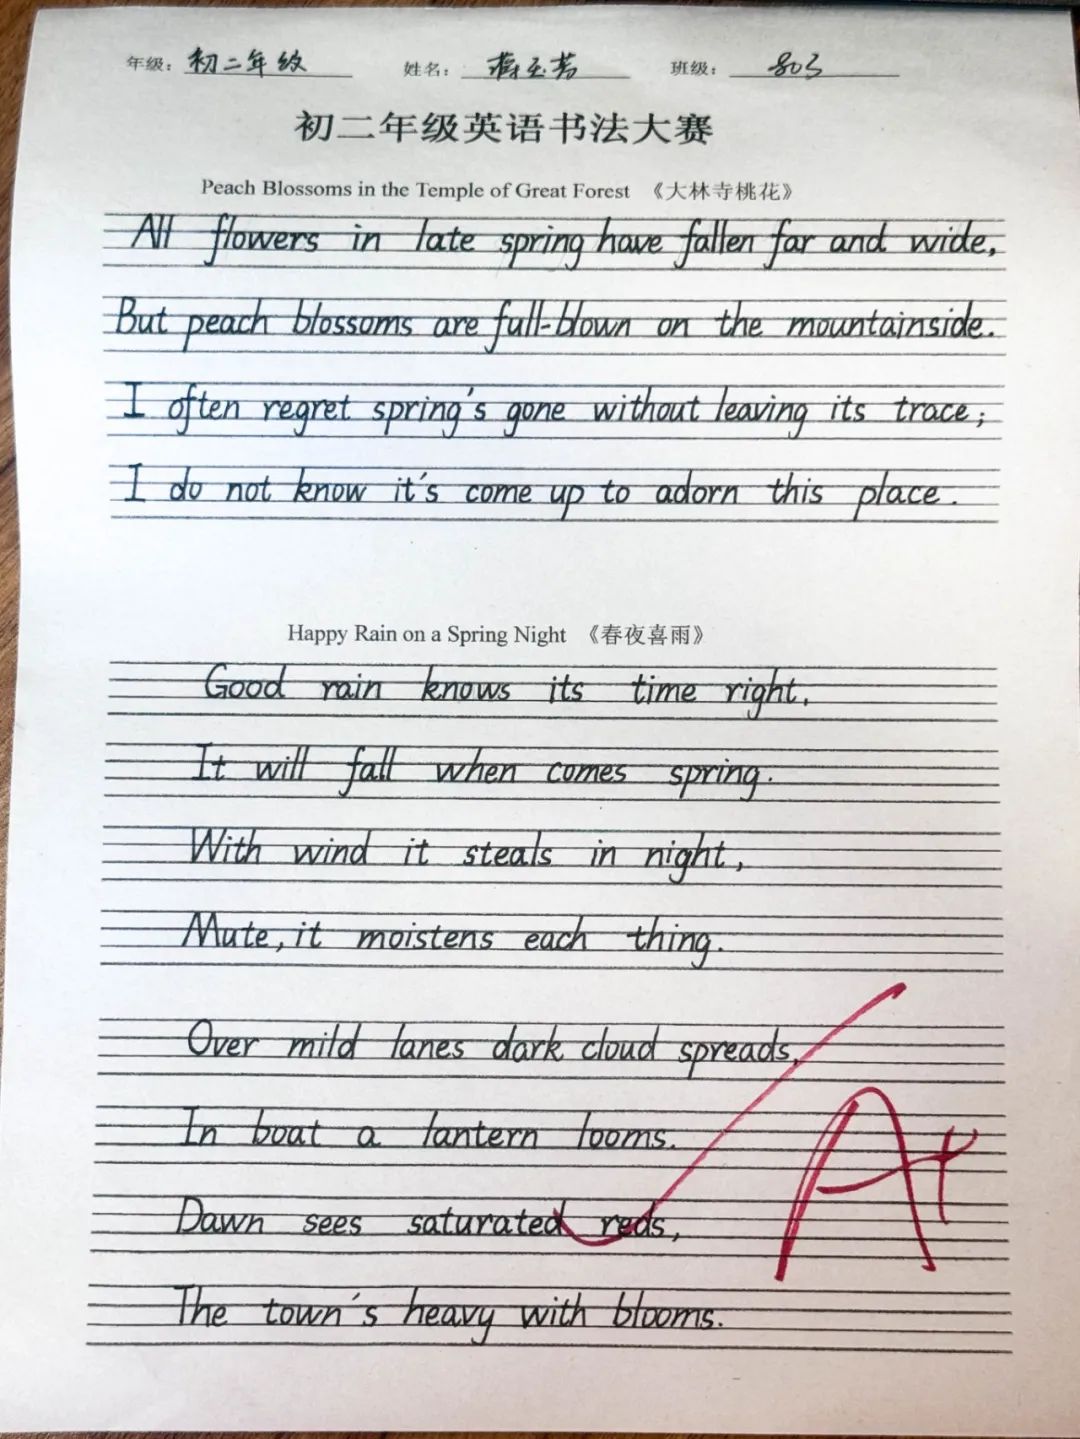 年级：初二年级 姓名：蒋玉芳 班级：803
初二年级英语书法大赛
Peach Blossoms in the Temple of Great Forest 《大林寺桃花》
All flowers in late spring have fallen far and wide,
But peach blossoms are full-blown on the mountainside.
I often regret spring's gone without leaving its trace;
I do not know it's come up to adorn this place.
Happy Rain on a Spring Night 《春夜喜雨》
Good rain knows its time right,
It will fall when comes spring.
With wind it steals in night,
Mute, it moistens each thing.
Over mild lanes dark cloud spreads,
In boat a lantern looms.
Dawn sees saturated reds,
The town's heavy with blooms.
A+